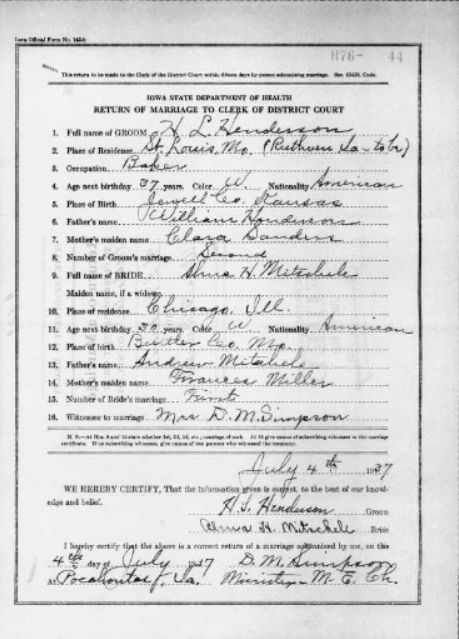 Iowa Official Form No.
H76- 44
This return to be made to the Clerk of the District Court within fifteen days by person solemnizing marriage. Sec. Code.
IOWA STATE DEPARTMENT OF HEALTH
RETURN OF MARRIAGE TO CLERK OF DISTRICT COURT
1. Full name of GROOM H L Henderson
2. Place of Residence St. Louis Mo. (Ruthven Ia - to be)
3. Occupation Baker
4. Age next birthday 37 years. Color W. Nationality American
5. Place of Birth Jewell Co. Kansas
6. Father's name William Henderson
7. Mother's maiden name Clara Sanders
8. Number of Groom's marriage Second
9. Full name of BRIDE Alma H. Mitschele
Maiden name, if a widow
10. Place of residence Chicago, Ill.
11. Age next birthday 30 years. Color W Nationality American
12. Place of birth Butler Co. Mo.
13. Father's name Andrew Mitschele
14. Mother's maiden name Frances Miller
15. Number of Bride's marriage First
16. Witnesses to marriage Mrs D. M. Simpson
N. B.—At Nos. 8 and 15 state whether 1st, 2d, 3d, etc., marriage of each. At 16 give names of subscribing witnesses to the marriage
certificate. If no subscribing witnesses, give names of two persons who witnessed the ceremony.
July 4th 1937
WE HEREBY CERTIFY, That the information given is correct, to the best of our knowl-
edge and belief.
H. L. Henderson Groom
Alma H. Mitschele Bride
I hereby certify that the above is a correct return of a marriage solemnized by me, on this
4th day of July 1937 D. M. Simpson
At Pocahontas, Ia. Minister - M. E. Ch.